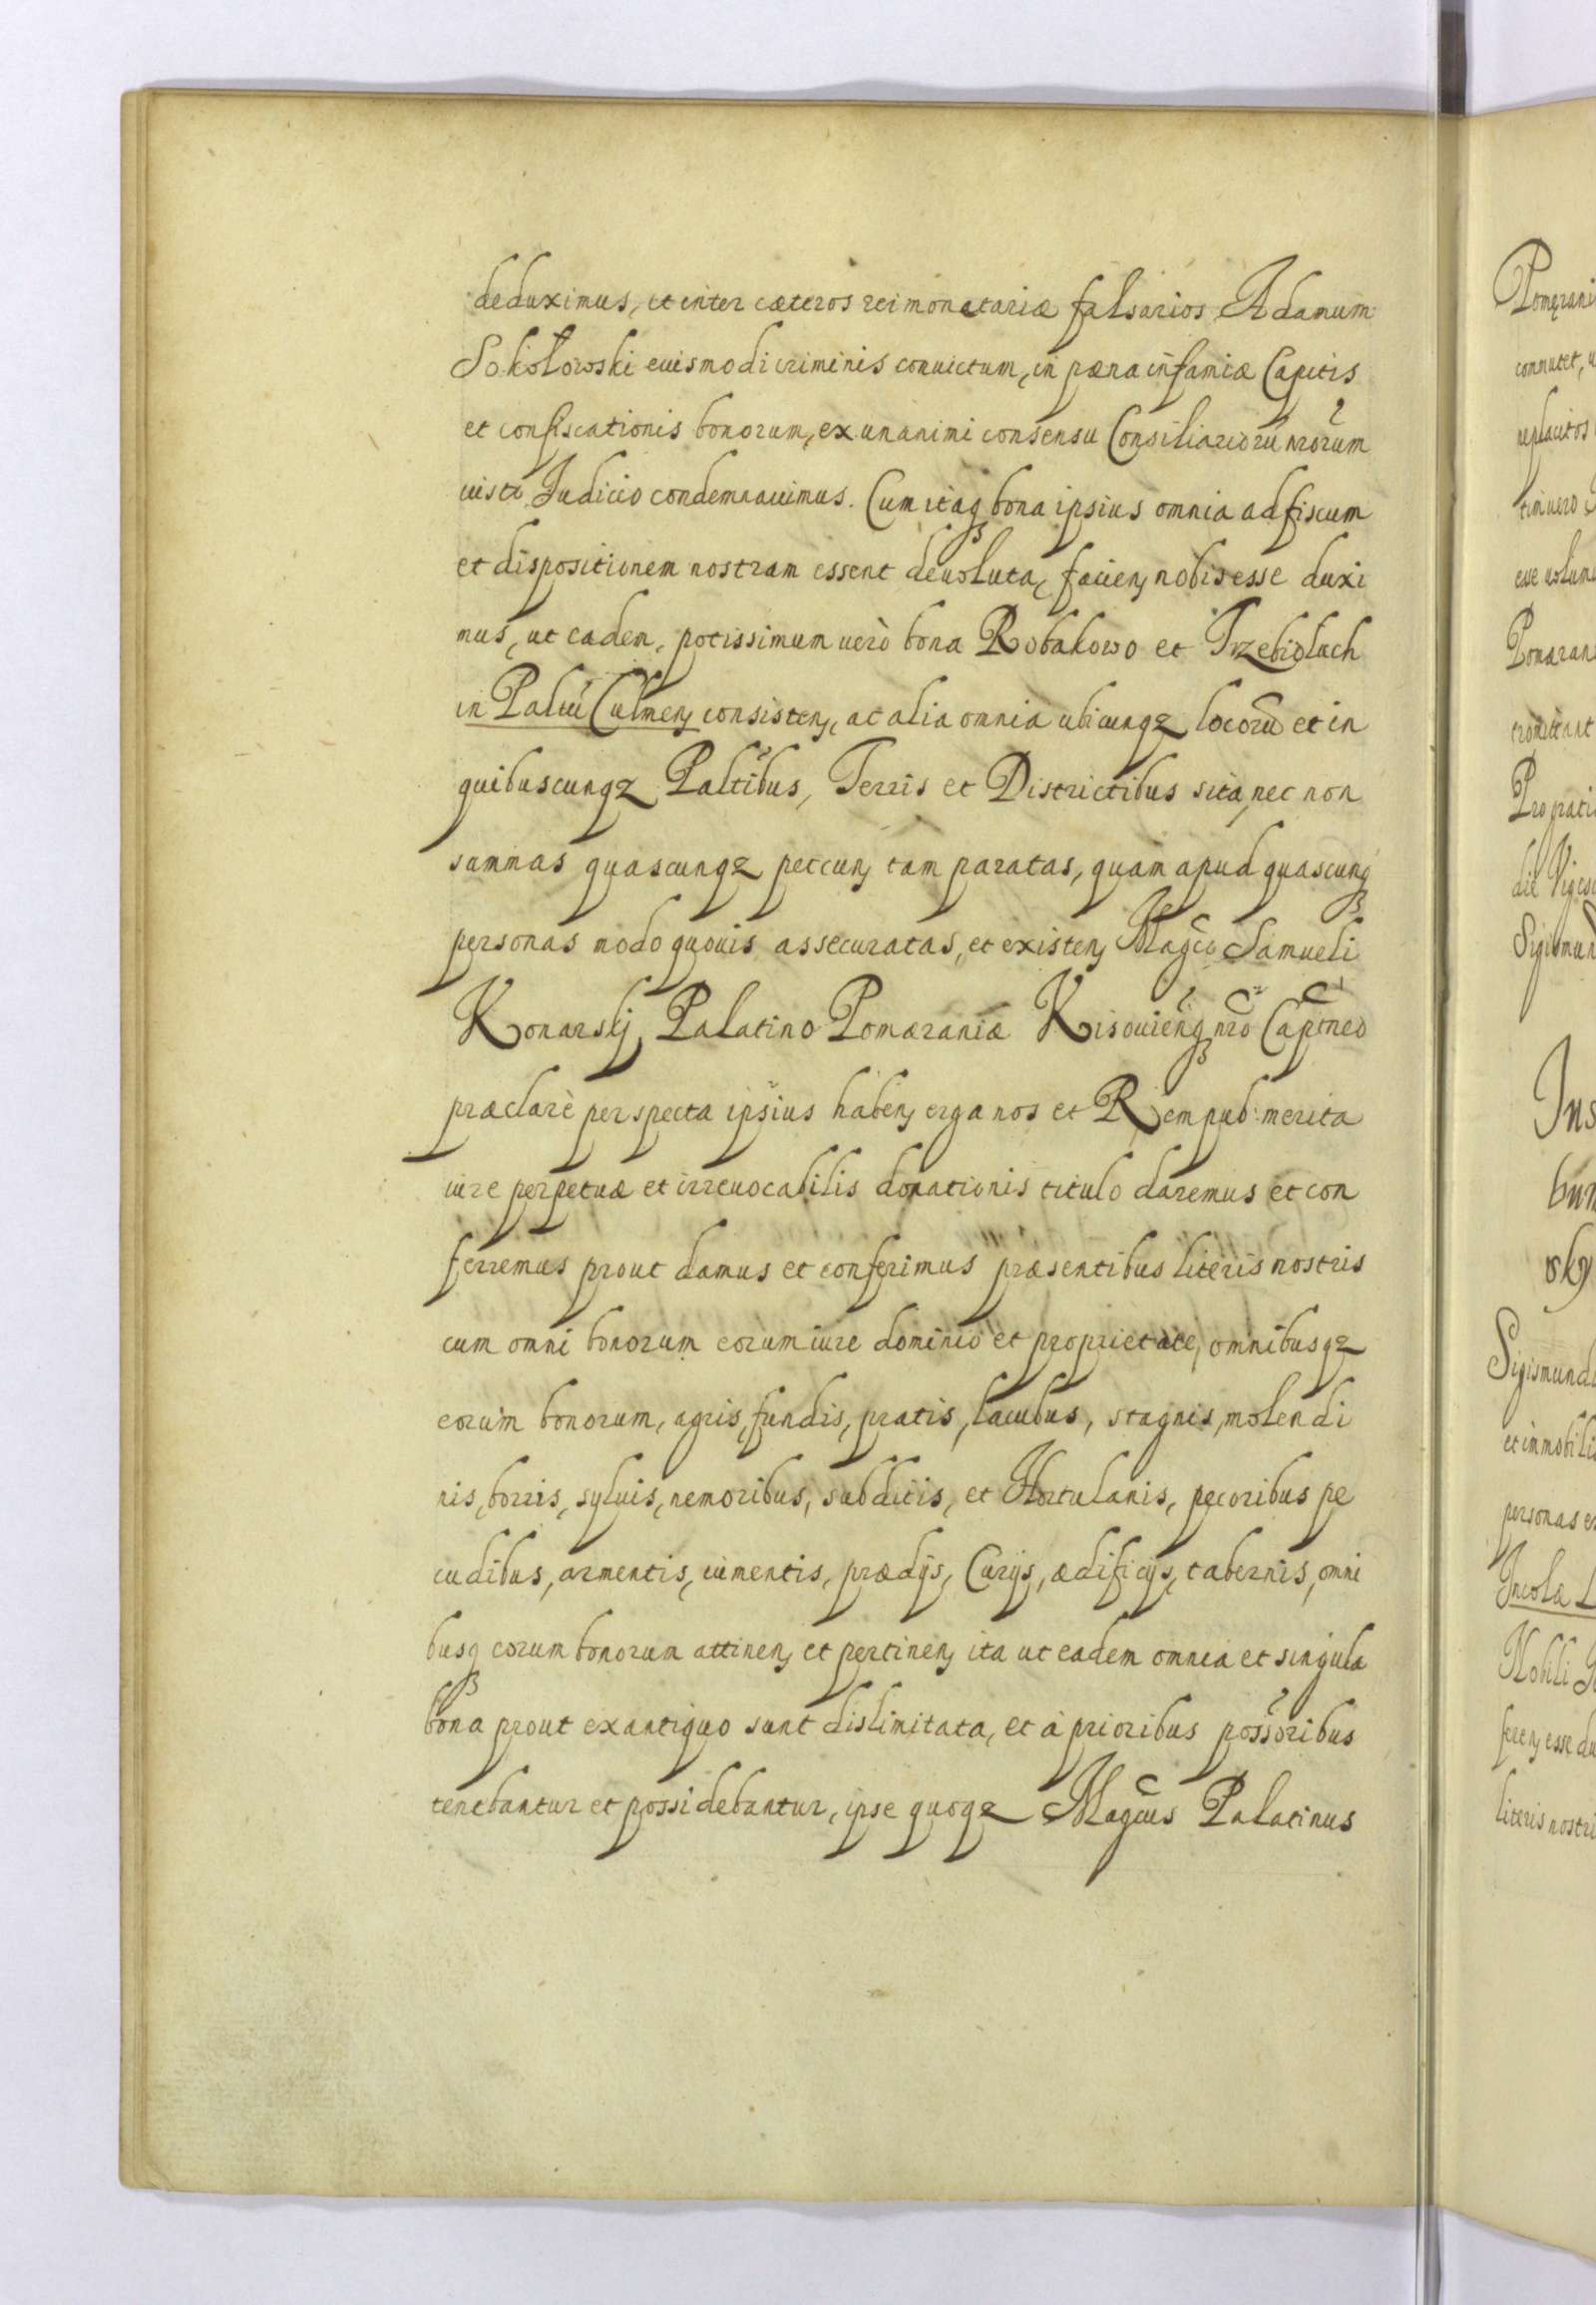 deduximus, et inter cæteros rei monetariæ falsarios Adamum
Sokołowski euismodi criminis conuictum, in pæna infamiæ Capitis
et confiscationis bonorum, ex unanimi consensu Consiliariorũ nrorum
iusto Judicio condemnauimus. Cum itaqȝ bona ipsius omnia ad fiscum
et dispositionem nostram essent deuoluta, facien nobis esse duxi
mus, ut eadem, potissimum uerò bona Robakowo et Trzebioluch
in Paltũ Culmen consisten, ac alia omnia ubicunqz locorũ et in
quibuscunqz Paltibus, Terris et Districtibus sita, nec non
summas quascunqz peccun tam paratas, quam apud quascunqȝ
personas modo quouis assecuratas, et existen Magco Samueli
Konarskj Palatino Pomæraniæ Kisouienqȝ nro Capitneo
præclarè perspecta ipsius haben erga nos et Rempub: merita
iure perpetuæ et irreuocabilis donationis titulo daremus et con
ferremus prout damus et conferimus præsentibus literis nostris
cum omni bonorum eorum iure dominio et proprietate, omnibusqz
eorum bonorum, agris, fundis, pratis, lacubus, stagnis, molendi
nis, borris, syluis, nemoribus, subditis, et Hortulanis, pecoribus pe
cudibus, armentis, iumentis, prædijs, Curijs, ædificijs, tabernis, omni
busqȝ eorum bonorum attinen et pertinen ita ut eadem omnia et singula
bona prout ex antiquo sunt dislimitata, et à prioribus possoribus
tenebantur et possidebantur, ipse quoqz Magcus Palatinus